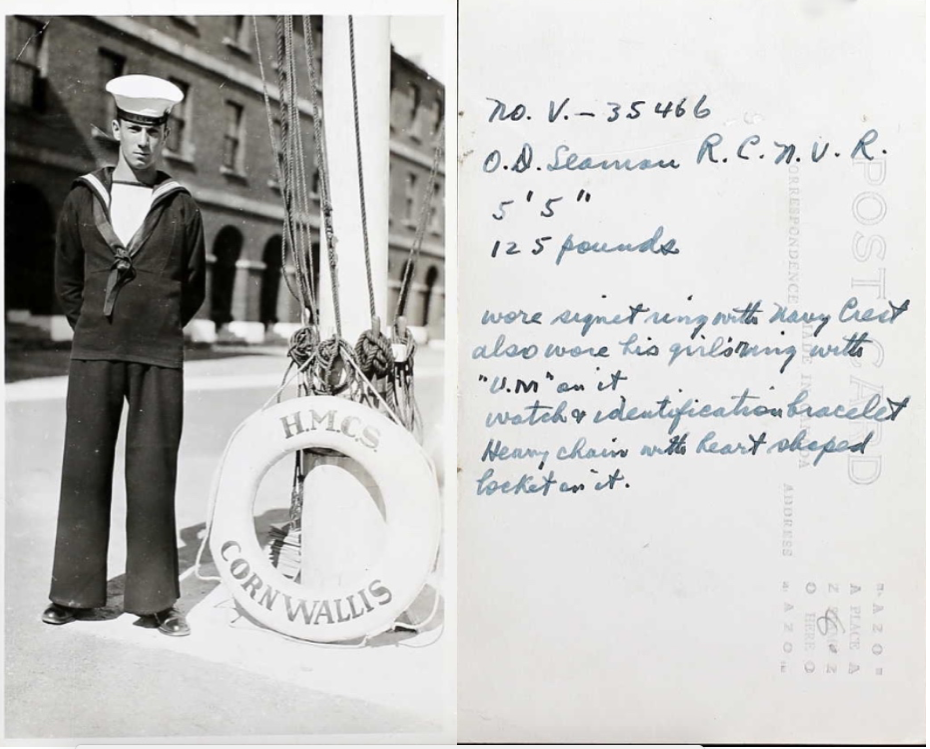 H.M.C.S.
CORNWALLIS
No. V. – 35466
O.D. Seaman R.C.N.V.R.
5'5"
125 pounds
wore signet ring with Navy Crest
also wore his girl's ring with
"U.M" on it
watch & identification bracelet
Heavy chain with heart shaped
locket on it.
POST CARD
CORRESPONDENCE
MADE IN CANADA
ADDRESS
PLACE
HERE
AZO